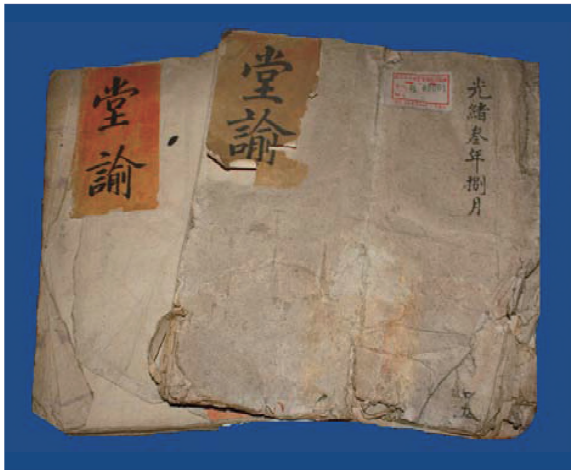 堂諭
堂諭
光緒叁年捌月